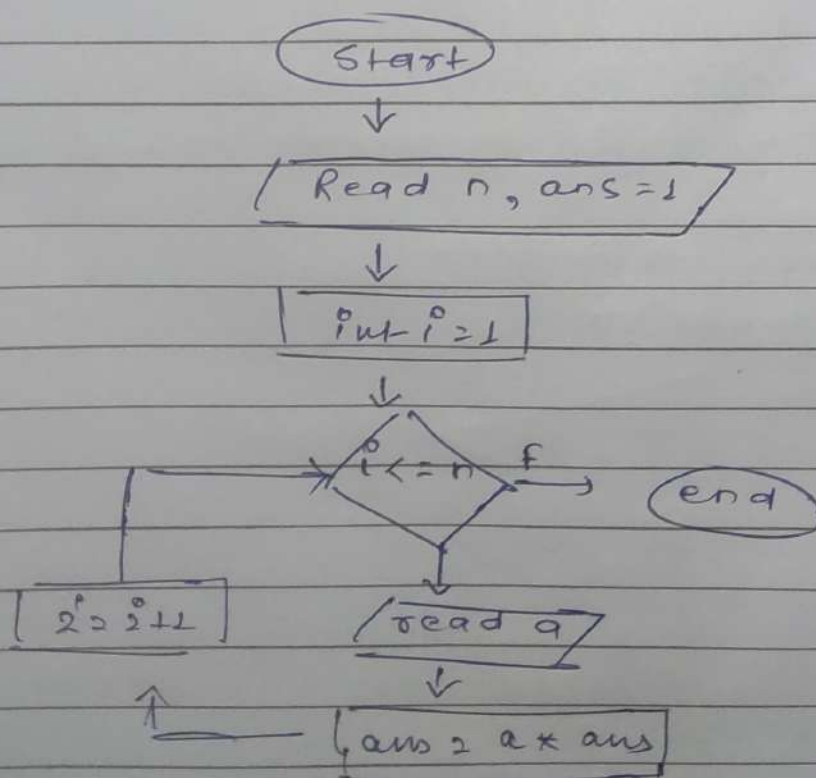 Start
Read n, ans=1
int i=1
i<=n
f
end
i=i+1
read a
ans = a * ans